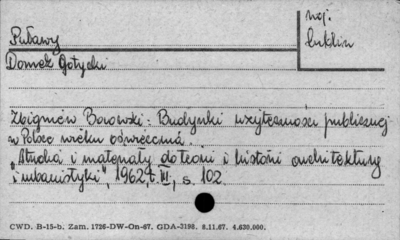 Puławy
woj.
lublin
Domek Gotycki
Zbigniew Borowski: Budynki użyteczności publicznej
w Polsce wieku oświecenia.
„Studia i materiały do teorii i historii architektury
i urbanistyki", 1962, t. III, s. 102.
CWD. B-15-b. Zam. 1726-DW-On-67. GDA-3198. 8.11.67. 4.630.000.